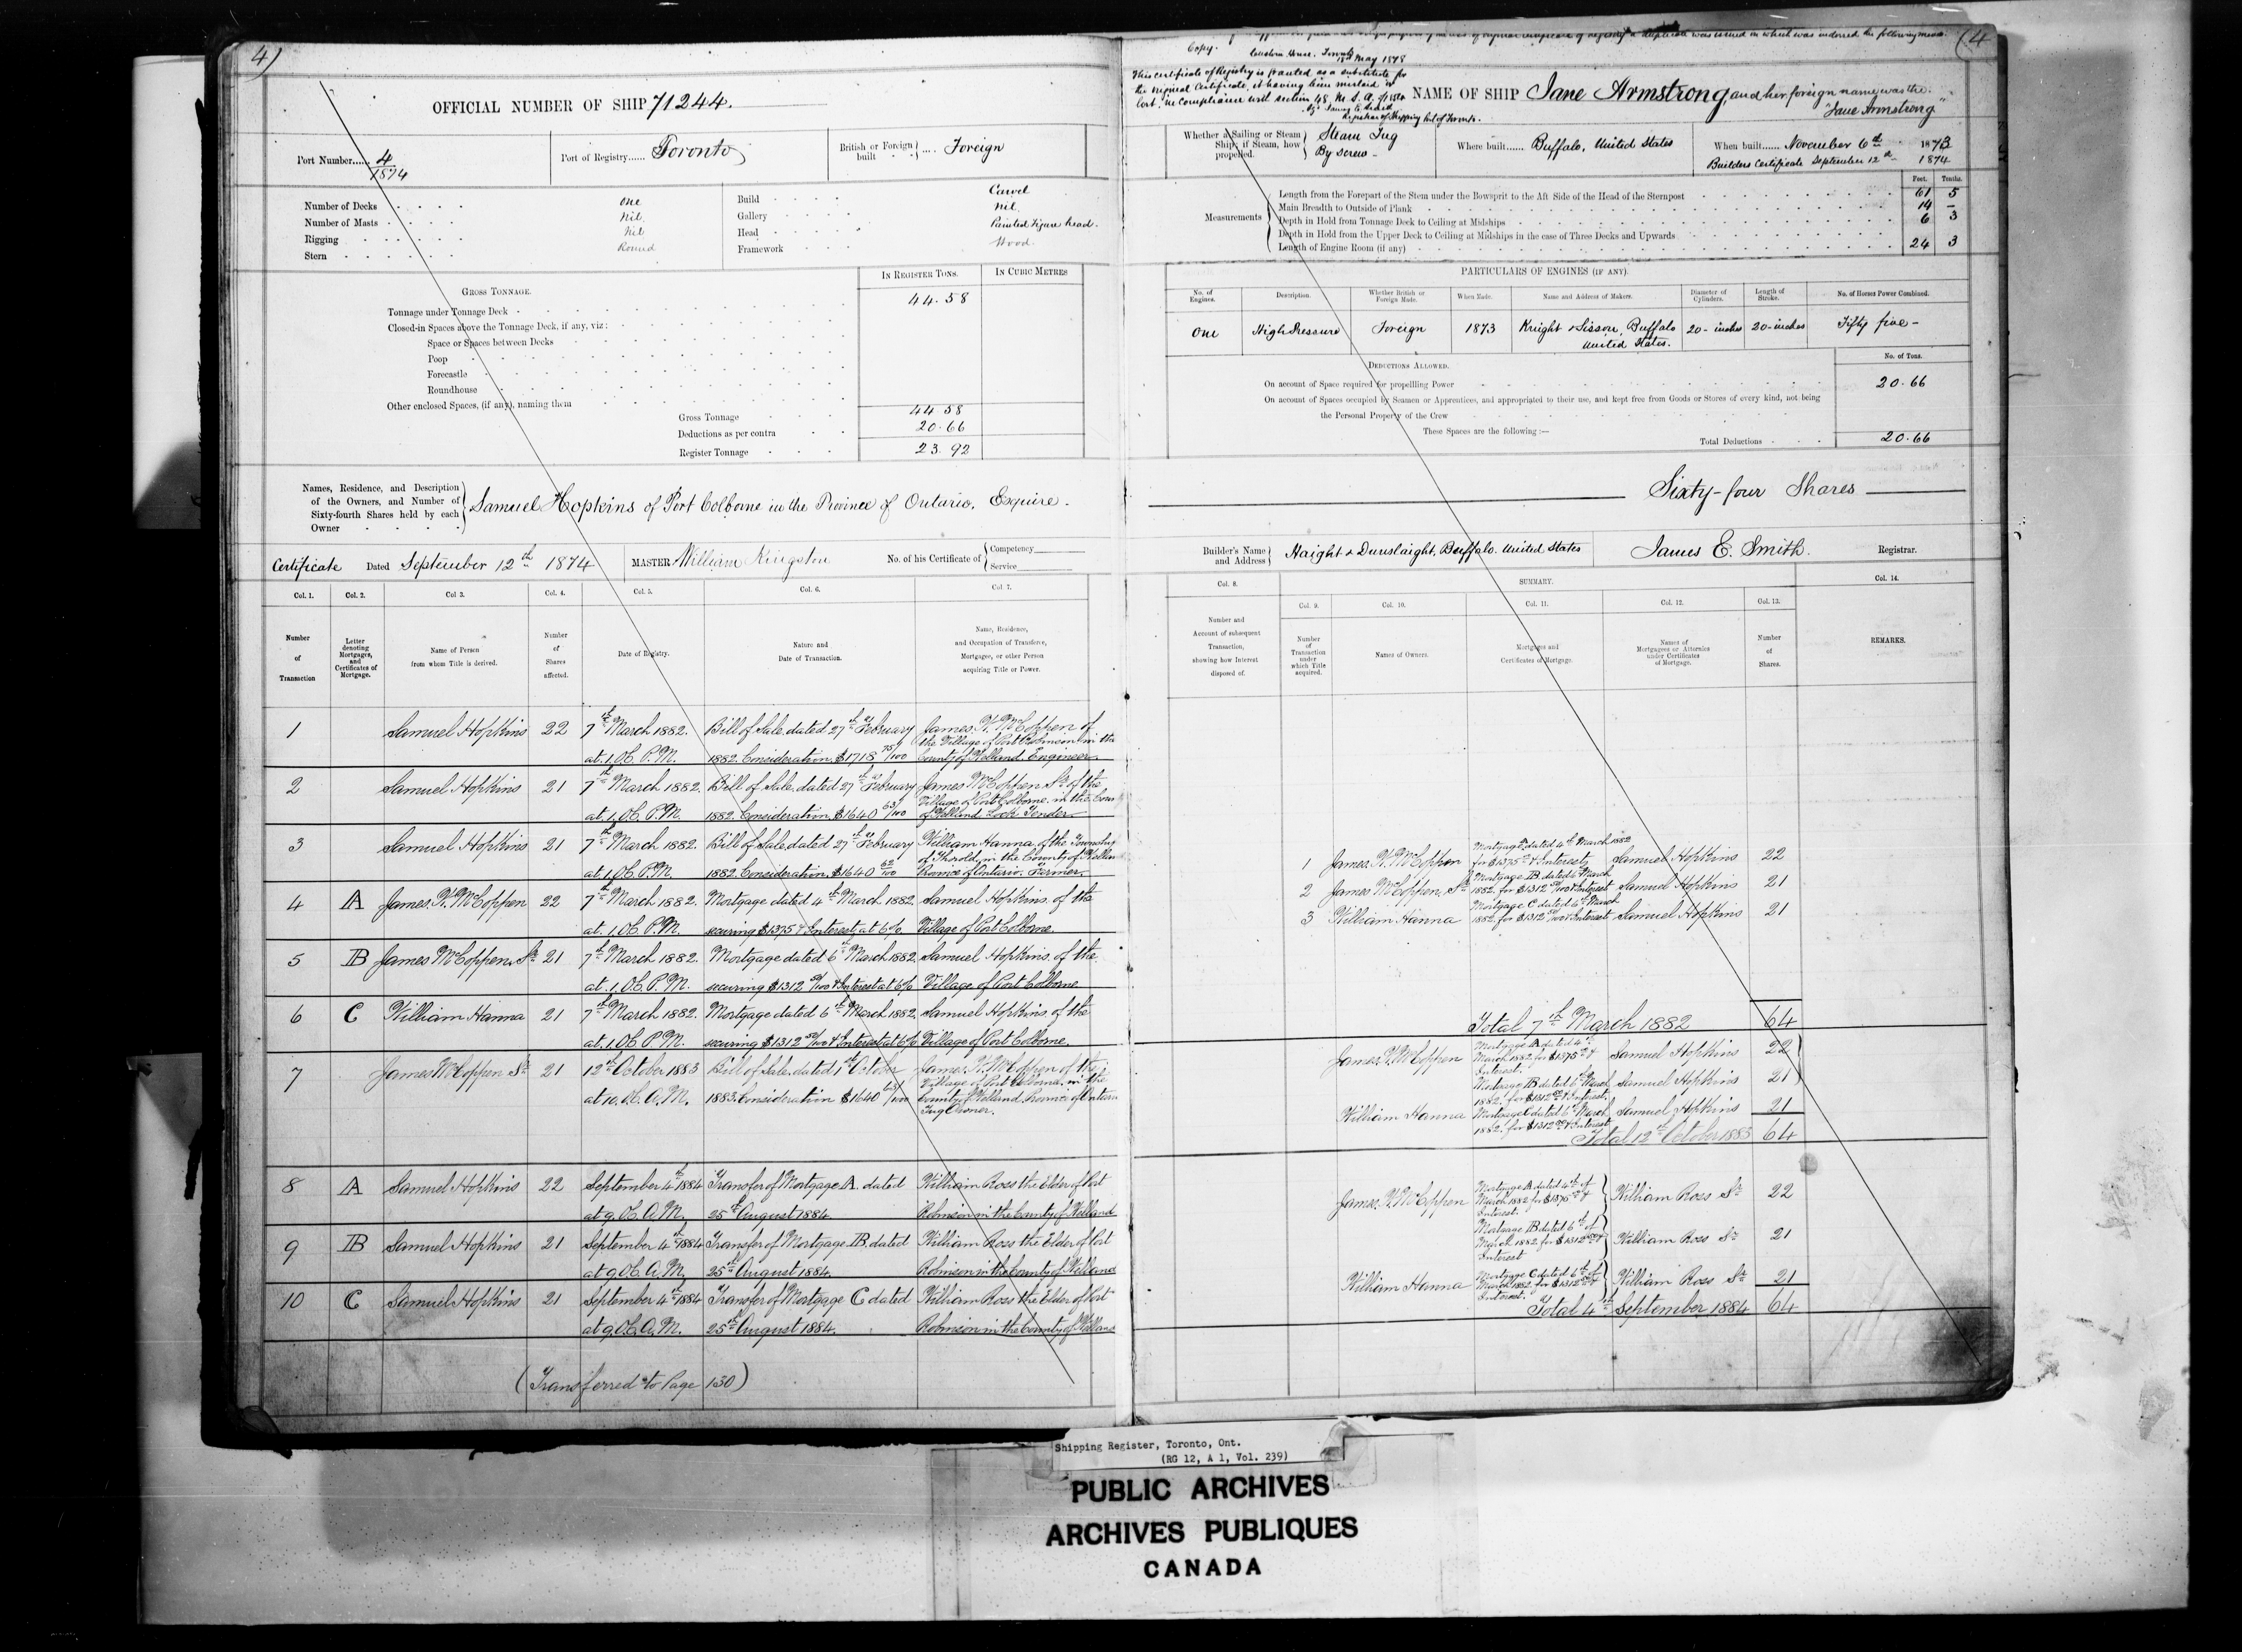 4)
OFFICIAL NUMBER OF SHIP 71244.
Port Number...... 4/1874
Port of Registry...... Toronto
British or Foreign built .... Foreign
Number of Decks One
Number of Masts Nil
Rigging Nil
Stern Round
Build Carvel
Gallery Nil
Head Painted Figure head.
Framework Wood
IN REGISTER TONS. IN CUBIC METRES
GROSS TONNAGE.
Tonnage under Tonnage Deck 44.58
Closed-in Spaces above the Tonnage Deck, if any, viz:
Space or Spaces between Decks
Poop
Forecastle
Roundhouse
Other enclosed Spaces, (if any), naming them
Gross Tonnage 44 58
Deductions as per contra 20.66
Register Tonnage 23.92
Names, Residence, and Description
of the Owners, and Number of
Sixty-fourth Shares held by each
Owner
Samuel Hopkins of Port Colborne in the Province of Ontario, Esquire.
Certificate Dated September 12th 1874
MASTER William Kingston
No. of his Certificate of Competency Service
Col. 1. Col. 2. Col 3. Col. 4. Col. 5. Col. 6. Col. 7.
Number of Transaction
Letter denoting Mortgages, and Certificates of Mortgage.
Name of Person from whom Title is derived.
Number of Shares affected.
Date of Registry.
Nature and Date of Transaction.
Name, Residence, and Occupation of Transferee, Mortgagee, or other Person acquiring Title or Power.
1 Samuel Hopkins 22 7th March 1882. Bill of Sale dated 27th February James H. McCoppen of
the Village of Port Robinson in the
at 1. O.C. P.M. 1882. Consideration $1718 75/100 County of Welland, Engineer
2 Samuel Hopkins 21 7th March 1882. Bill of Sale dated 27th February James McCoppen Sr. of the
Village of Port Colborne in the
at 1. O.C. P.M. 1882. Consideration $1640 63/100 of Welland Lock Tender
3 Samuel Hopkins 21 7th March 1882 Bill of Sale dated 27th February William Hanna of the Township
of Thorold, in the County of
at 1. O.C. P.M. 1882. Consideration $1640 62/100 Province of Ontario. Farmer.
4 A James H. McCoppen 22 7th March 1882. Mortgage dated 4th March 1882 Samuel Hopkins of the
at 1. O.C. P.M. securing $1375 & Interest at 6%. Village of Port Colborne.
5 B James McCoppen, Sr. 21 7th March 1882. Mortgage dated 6th March 1882, Samuel Hopkins of the
at 1. O.C. P.M. securing $1312 50/100 & Interest at 6% Village of Port Colborne
6 C William Hanna 21 7th March 1882. Mortgage dated 6th March 1882, Samuel Hopkins of the
at 1. O.C. P.M. securing $1312 50/100 & Interest at 6% Village of Port Colborne.
7 James McCoppen Sr. 21 12th October 1883 Bill of Sale, dated 1st October James H. McCoppen of the
Village of Port in the
at 10. O.C. A.M. 1883. Consideration $1640 63/100 County of Welland, Province of
Tug Owner.
8 A Samuel Hopkins 22 September 4th 1884 Transfer of Mortgage A. dated William Ross the Elder of Port
at 9. O.C. A.M. 25th August 1884 Robinson in the County of Welland
9 B Samuel Hopkins 21 September 4th 1884 Transfer of Mortgage B. dated William Ross the Elder of Port
at 9. O.C. A.M. 25th August 1884. Robinson in the County of Welland
10 C Samuel Hopkins 21 September 4th 1884 Transfer of Mortgage C dated William Ross the Elder of Port
at 9. O.C. A.M. 25th August 1884. Robinson in the County of Welland
(Transferred to Page 130)
(4
of original Certificate of Registry a duplicate was issued in which was indorsed the following
Copy. Custom House. Toronto
18th May 1878
This Certificate of Registry is granted as a substitute for
the original Certificate, it having been mislaid or
lost, in compliance with section 48, M. S. A. of 1854
Registrar of Shipping Port of Toronto.
NAME OF SHIP Jane Armstrong and her foreign name was the
"Jane Armstrong"
Whether a Sailing or Steam Ship; if Steam, how propelled.
Steam Tug
By Screw
Where built...... Buffalo, United States
When built...... November 6th 1873
Builders Certificate September 12th 1874
Feet. Tenths.
Measurements
Length from the Forepart of the Stem under the Bowsprit to the Aft Side of the Head of the Sternpost 61 5
Main Breadth to Outside of Plank 14 -
Depth in Hold from Tonnage Deck to Ceiling at Midships 6 3
Depth in Hold from the Upper Deck to Ceiling at Midships in the case of Three Decks and Upwards
Length of Engine Room (if any) 24 3
PARTICULARS OF ENGINES (IF ANY).
No. of Engines. Description. Whether British or Foreign Made. When Made. Name and Address of Makers. Diameter of Cylinders. Length of Stroke. No. of Horses Power Combined.
One High Pressure Foreign 1873 Knight & Sisson, Buffalo United States. 20-inches 20-inches Fifty five-
DEDUCTIONS ALLOWED. No. of Tons.
On account of Space required for propelling Power 20.66
On account of Spaces occupied by Seamen or Apprentices, and appropriated to their use, and kept free from Goods or Stores of every kind, not being
the Personal Property of the Crew
These Spaces are the following:—
Total Deductions 20.66
Sixty-four Shares
Builder's Name and Address Haight & Dunslaight, Buffalo. United States
James E. Smith. Registrar.
Col. 8. SUMMARY. Col. 14.
Col. 9. Col. 10. Col. 11. Col. 12. Col. 13.
Number and Account of subsequent Transaction, showing how Interest disposed of.
Number of Transaction under which Title acquired.
Names of Owners.
Mortgages and Certificates of Mortgage.
Names of Mortgagees or Attornies under Certificates of Mortgage.
Number of Shares.
REMARKS.
1 James H. McCoppen Mortgage dated 4th March 1882 for $1375 & Interest Samuel Hopkins 22
2 James McCoppen, Sr. Mortgage B dated 6th March 1882. for $1312 50/100 & Interest Samuel Hopkins 21
3 William Hanna Mortgage C dated 6th March 1882. for $1312 50/100 & Interest Samuel Hopkins 21
Total 7th March 1882 64
James H. McCoppen Mortgage A dated 4th March 1882 for $1375 & Interest. Samuel Hopkins 22
Mortgage B dated 6th March 1882. for $1312 50 & Interest. Samuel Hopkins 21
William Hanna Mortgage C dated 6th March 1882. for $1312 50 & Interest Samuel Hopkins 21
Total 12th October 1883 64
James H. McCoppen Mortgage A dated 4th of March 1882 for $1375 & Interest. William Ross Sr. 22
Mortgage B dated 6th of March 1882. for $1312 50 & Interest William Ross Sr. 21
William Hanna Mortgage C dated 6th of March 1882. for $1312 50 & Interest. William Ross Sr. 21
Total 4th September 1884 64
Shipping Register, Toronto, Ont.
(RG 12, A 1, Vol. 239)
PUBLIC ARCHIVES
ARCHIVES PUBLIQUES
CANADA